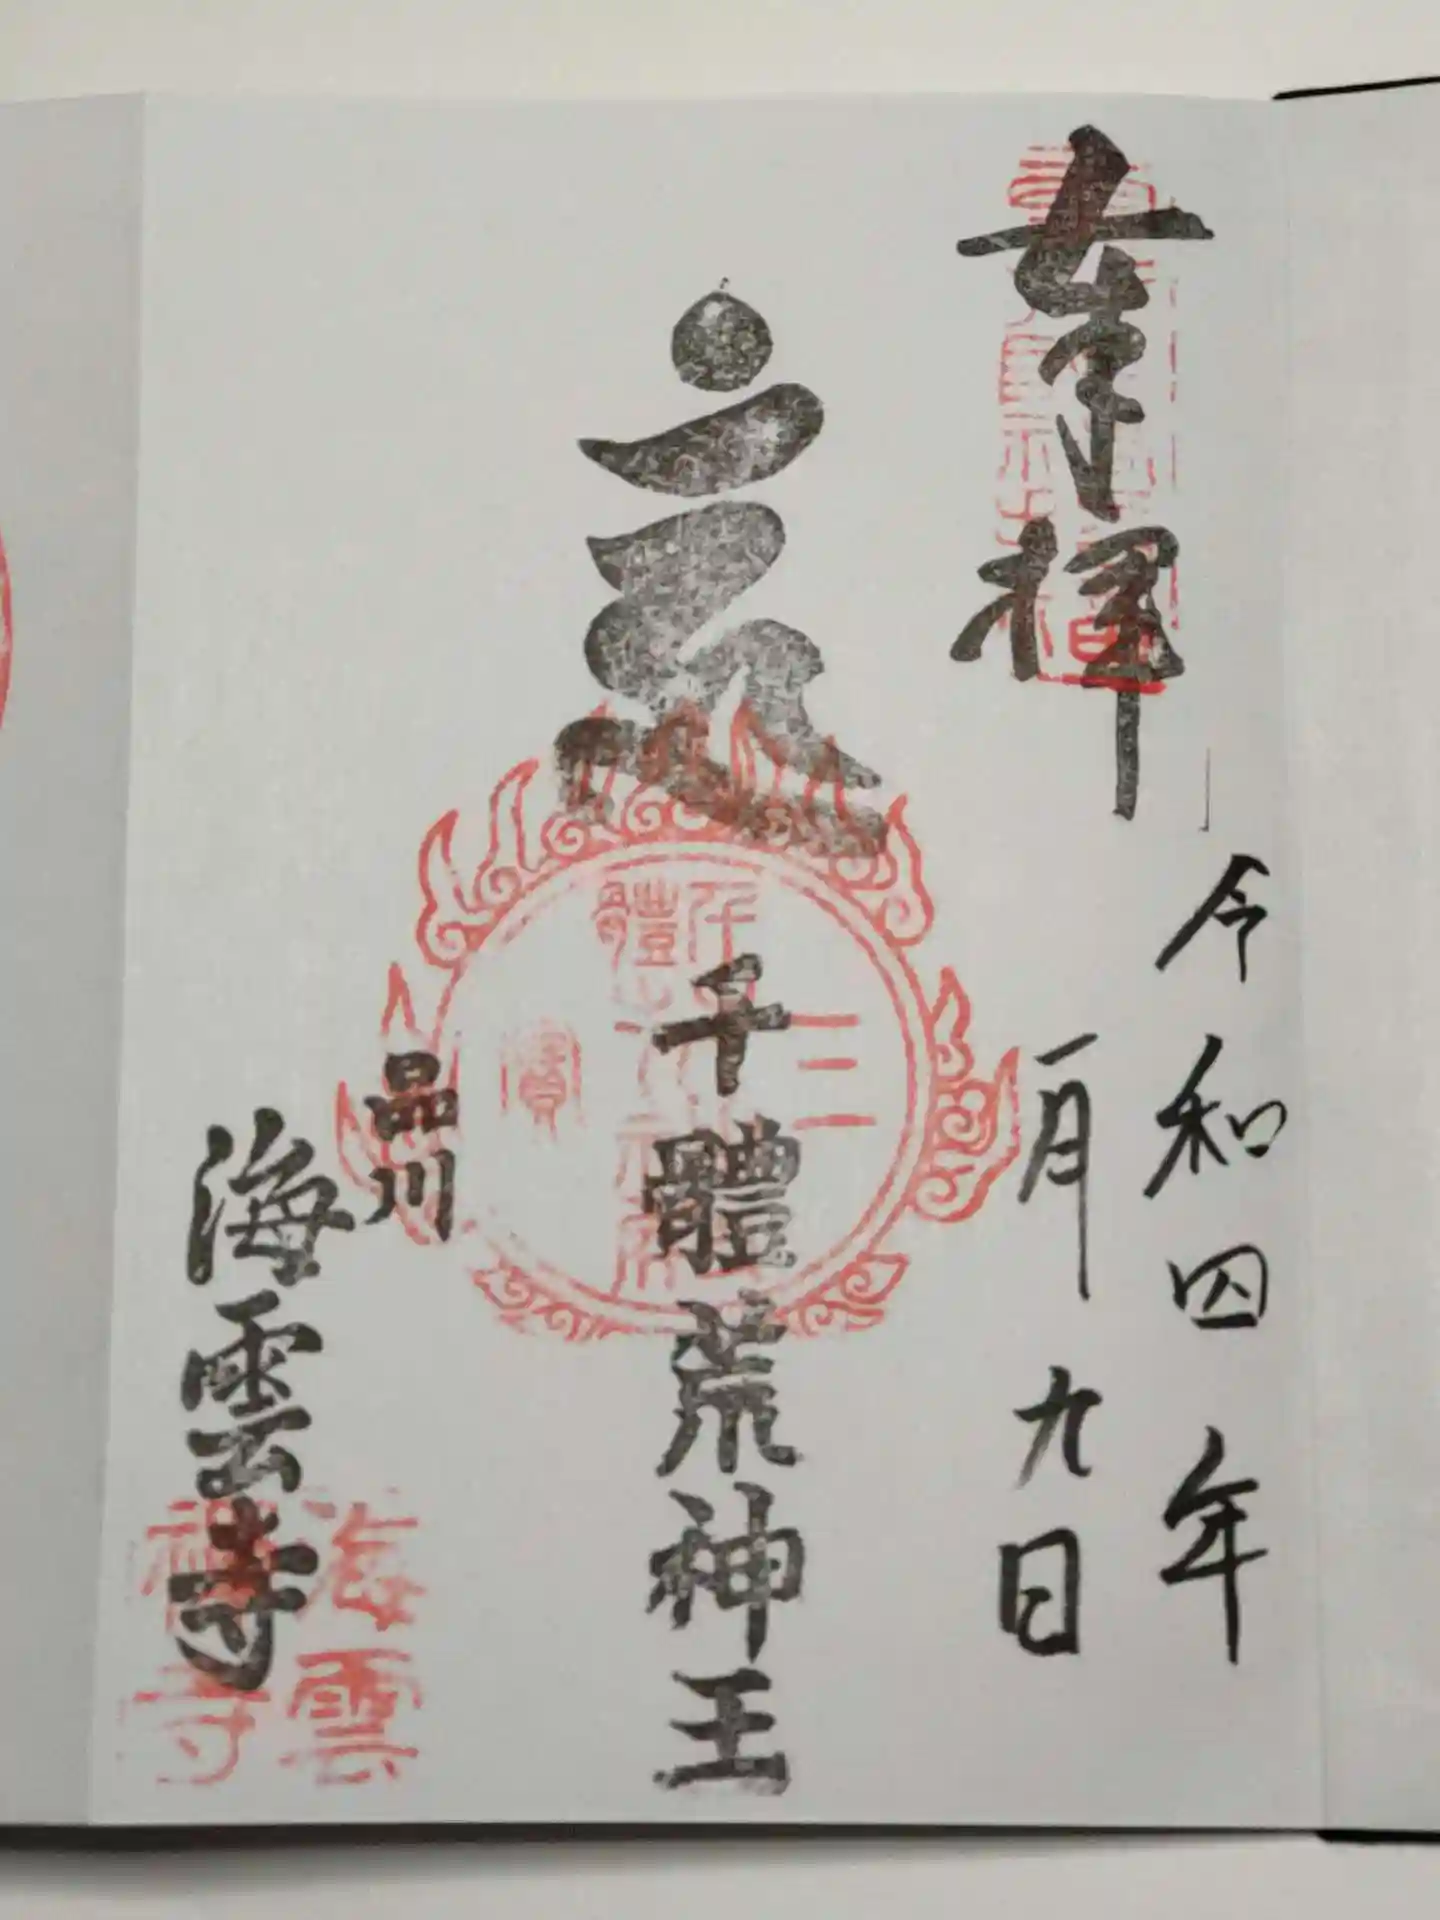 奉拝
令和四年
一月九日
千體荒神王
三
寳
品川
海雲寺
海雲
禅寺